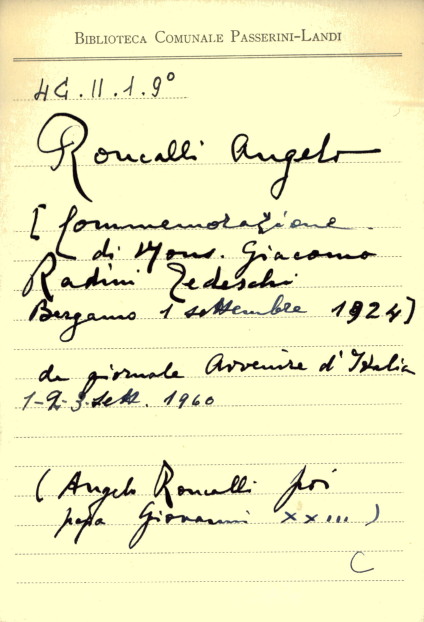 BIBLIOTECA COMUNALE PASSERINI-LANDI
4G.II.1.9°
Roncalli Angelo
[Commemorazione
di Mons. Giacomo
Radini Tedeschi
Bergamo 1 settembre 1924]
da giornale Avvenire d'Italia
1-2-3 sett. 1960
(Angelo Roncalli poi
papa Giovanni XXIII)
C